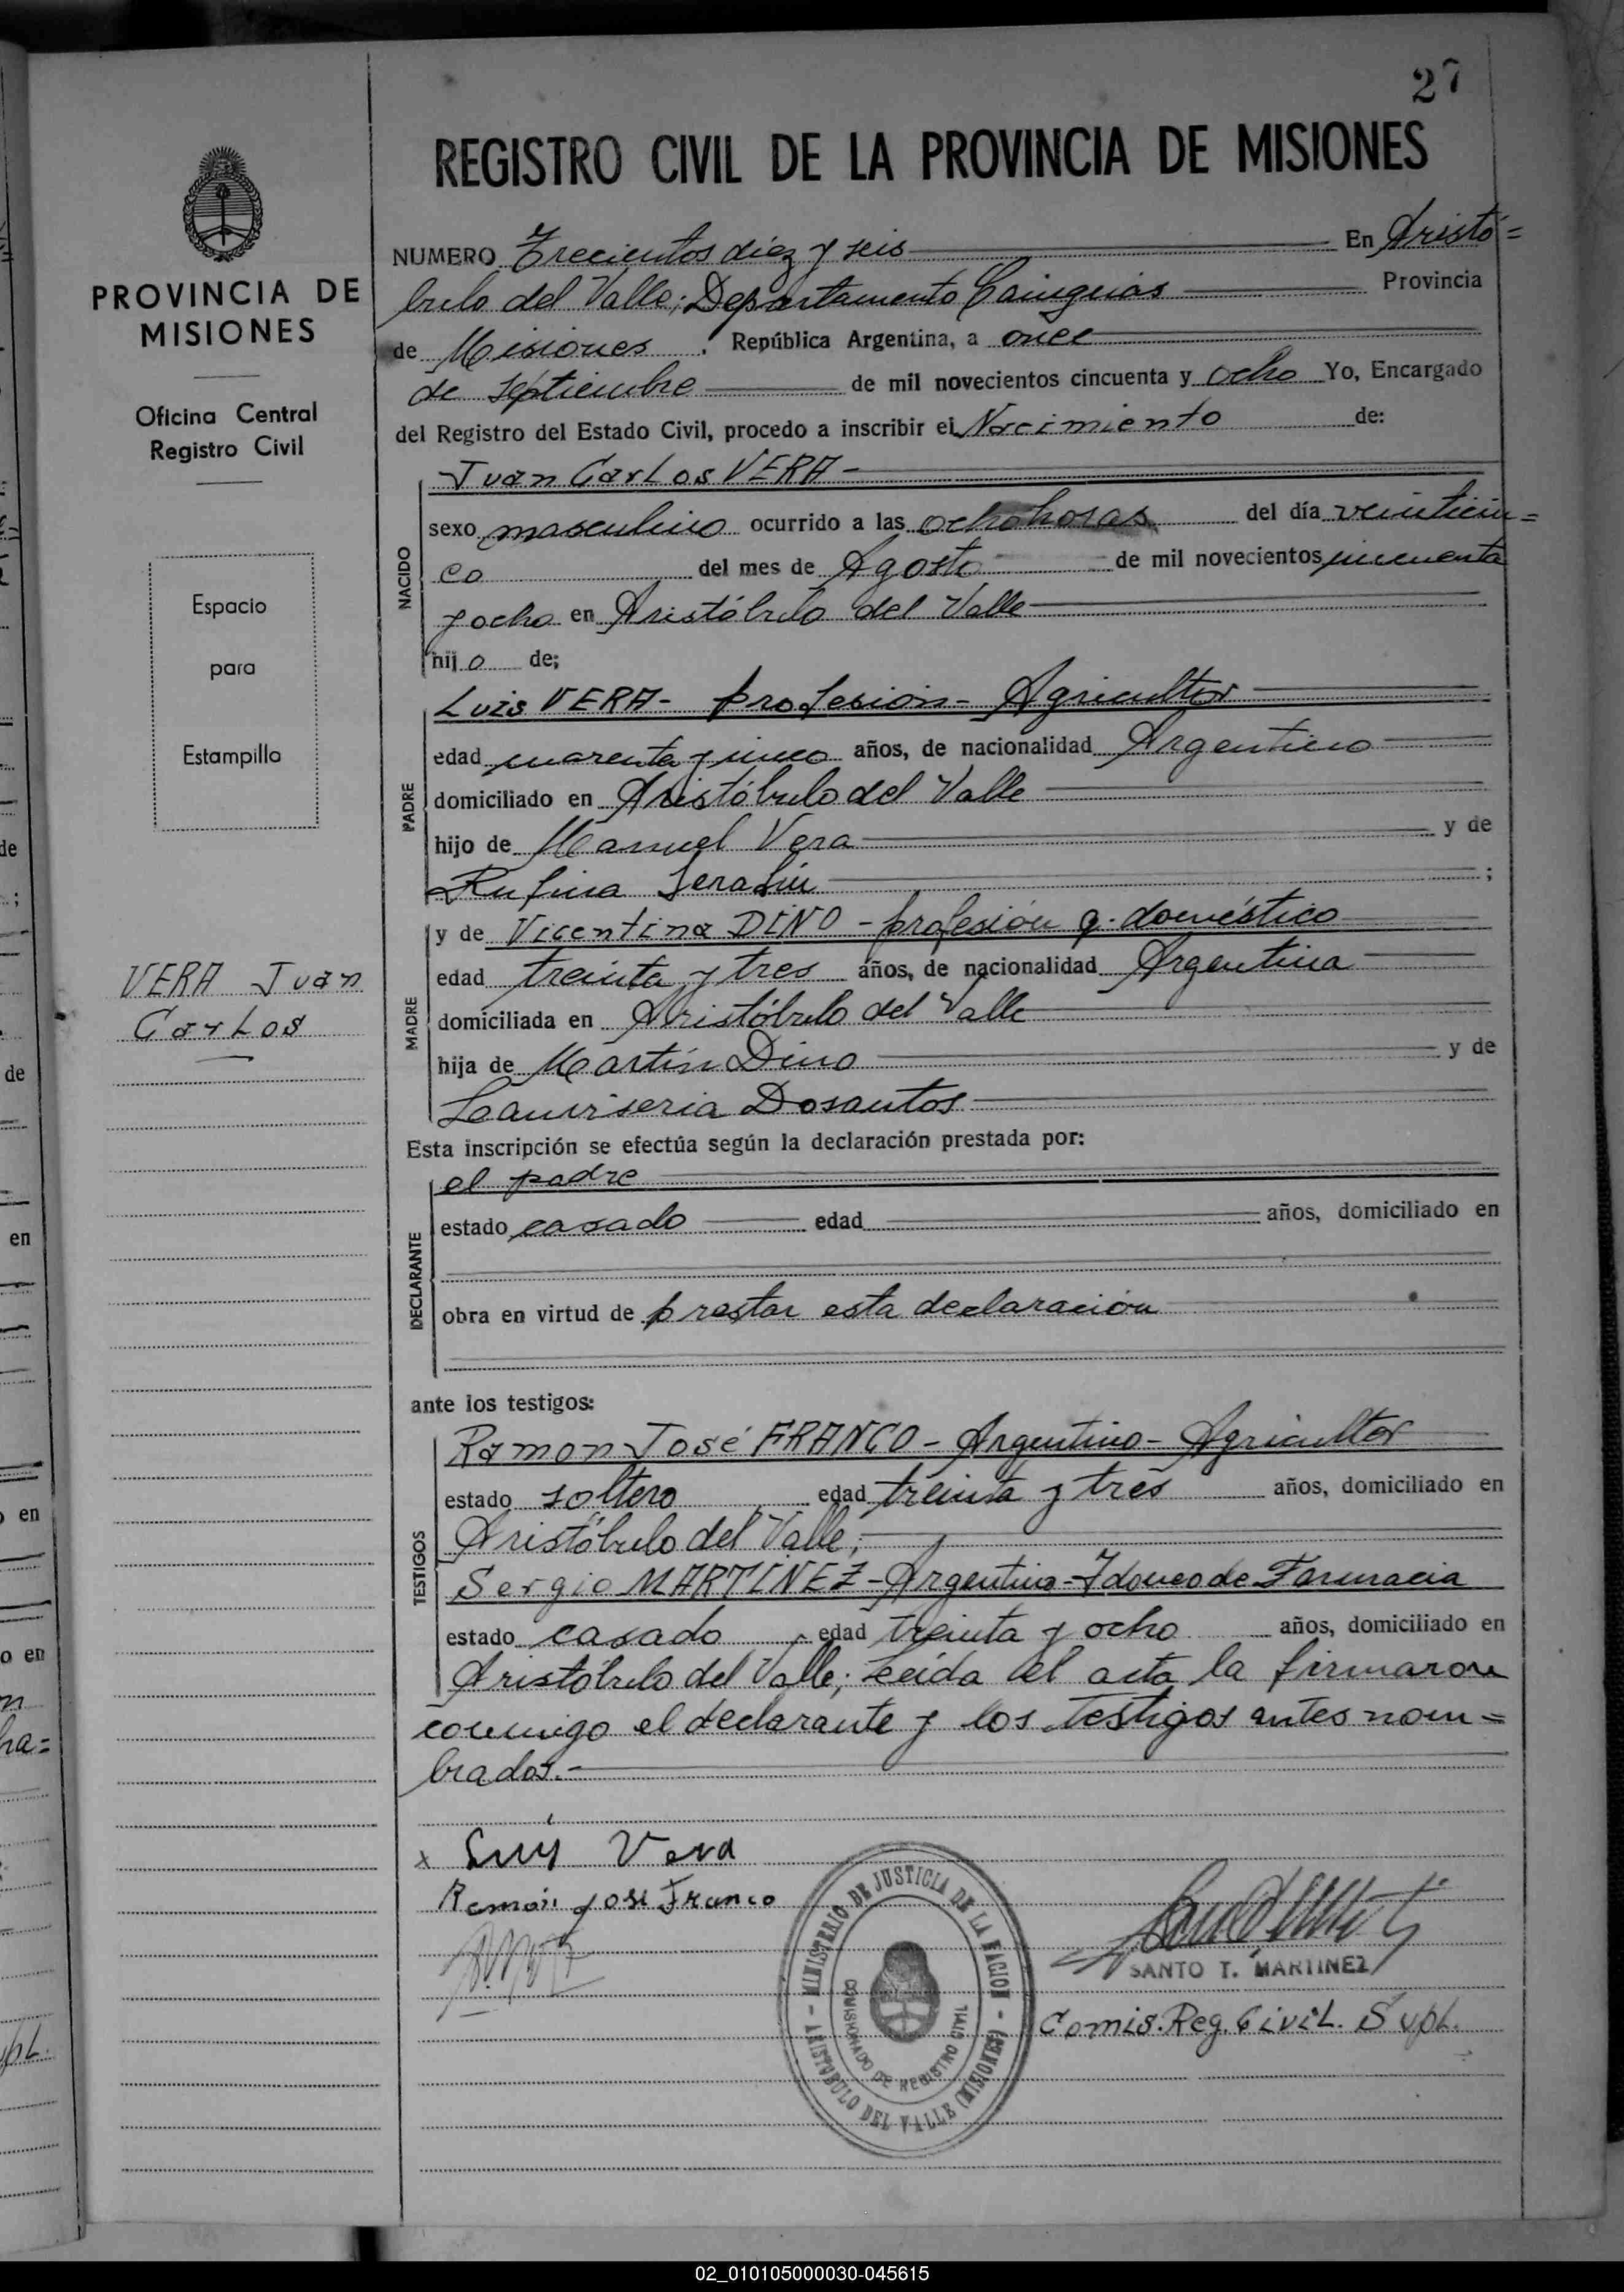 27
REGISTRO CIVIL DE LA PROVINCIA DE MISIONES
PROVINCIA DE
MISIONES
Oficina Central
Registro Civil
Espacio
para
Estampilla
VERA Juan
Carlos
NUMERO Trecientos diez y seis En Aristó=
bulo del Valle; Departamento Cainguás Provincia
de Misiones, República Argentina, a once
de septiembre de mil novecientos cincuenta y ocho Yo, Encargado
del Registro del Estado Civil, procedo a inscribir el Nacimiento de:
NACIDO
Juan Carlos VERA-
sexo masculino ocurrido a las ocho horas del día veinticin=
co del mes de Agosto de mil novecientos cincuenta
y ocho en Aristóbulo del Valle
hijo de;
PADRE
Luis VERA- profesión- Agricultor
edad cuarenta y cinco años, de nacionalidad Argentino
domiciliado en Aristóbulo del Valle
hijo de Manuel Vera y de
Rufina Serafin ;
MADRE
y de Vicentina DINO - profesión q. doméstico
edad treinta y tres años, de nacionalidad Argentina
domiciliada en Aristóbulo del Valle
hija de Martín Dino y de
Dosantos
Esta inscripción se efectúa según la declaración prestada por:
DECLARANTE
el padre
estado casado edad años, domiciliado en
obra en virtud de prestar esta declaración
ante los testigos:
TESTIGOS
Ramon José FRANCO - Argentino - Agricultor
estado soltero edad treinta y tres años, domiciliado en
Aristóbulo del Valle;
Sergio MARTINEZ - Argentino - Idoneo de Farmacia
estado casado edad treinta y ocho años, domiciliado en
Aristóbulo del Valle; Leída el acta la firmaron
conmigo el declarante y los testigos antes nom=
brados.-
x Luis Vera
Ramón José Franco
MINISTERIO DE JUSTICIA DE LA NACION - ARISTOBULO DEL VALLE (MISIONES) -
COMISIONADO DE REGISTRO CIVIL
SANTO T. MARTINEZ
Comis. Reg. Civil. Supl.
02_010105000030-045615